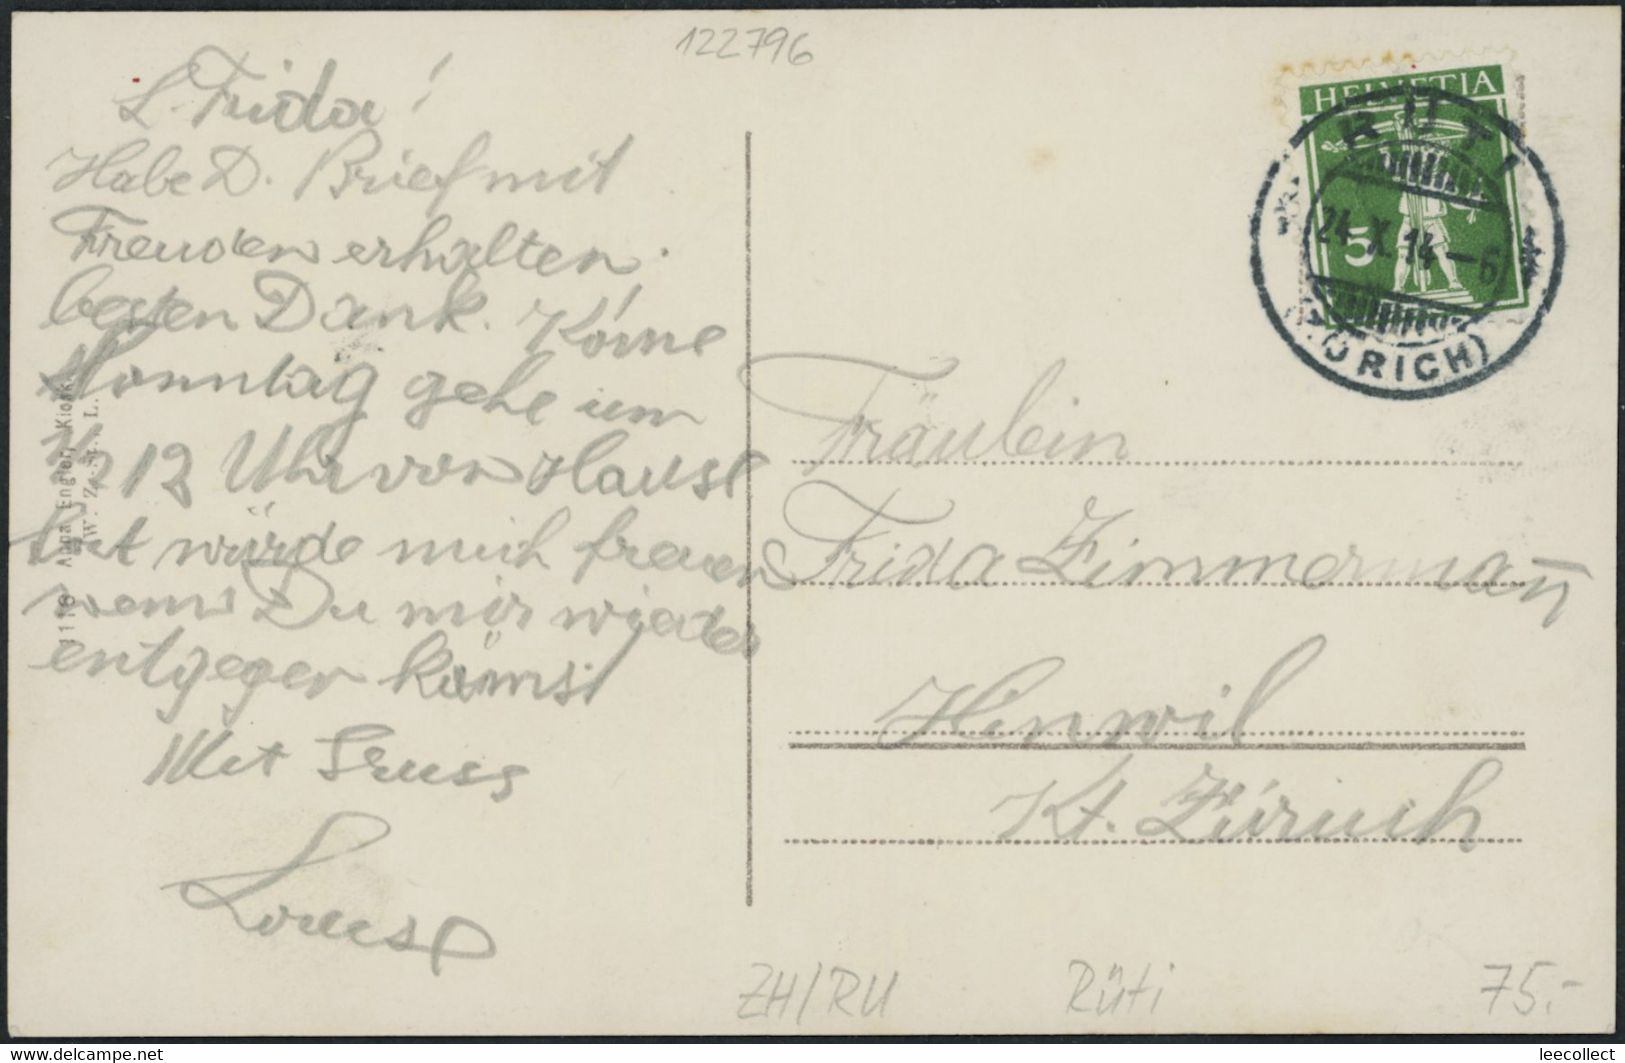 122796
L. Frida!
Habe D. Brief mit
Freuden erhalten.
besten Dank. Kome
Sonntag gehe um
1/2 12 Uhr von Hause
fort würde mich freuen
wenn Du mir wieder
entgegen kämst
Mit Gruss
Louise
1118 Anna Engler, Kiosk
W. Z. L.
HELVETIA
5
RÜTI
24.X.14-6
(ZÜRICH)
Fräulein
Frida Zimmermann
Hinwil
Kt. Zürich
ZH/RU
Rüti
75.-
leecollect